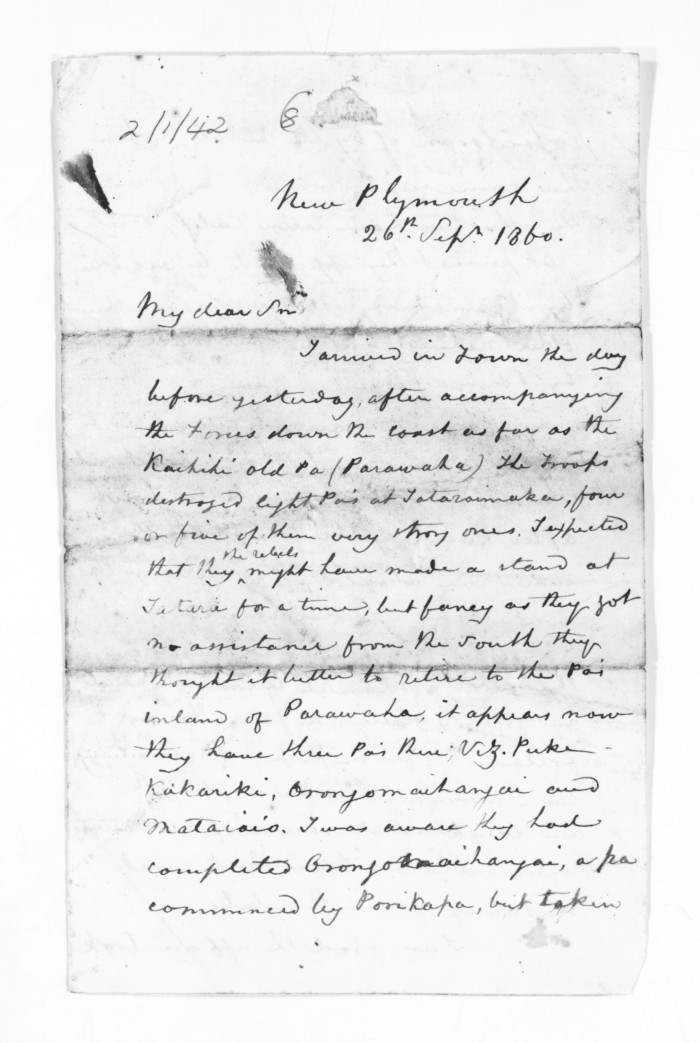 2/1/42 68
New Plymouth
26th. Sepr. 1860.
My dear Sir,
I arrived in Town the day
before yesterday, after accompanying
the Forces down the coast as far as the
Kaihihi old Pa (Parawaha) The Troops
destroyed eight Pas at Tataraimaka, four
or five of them very strong ones. I expected
the rebels
that they ^ might have made a stand at
Tetara for a time, but fancy as they got
no assistance from the South they
thought it better to retire to the Pas
inland of Parawaha, it appears now
they have three Pas there; Viz. Puke-
Kakariki, Orongomaihangai and
Mataiaio. I was aware they had
completed Orongomaihangai, a pa
commenced by Porikapa, but taken